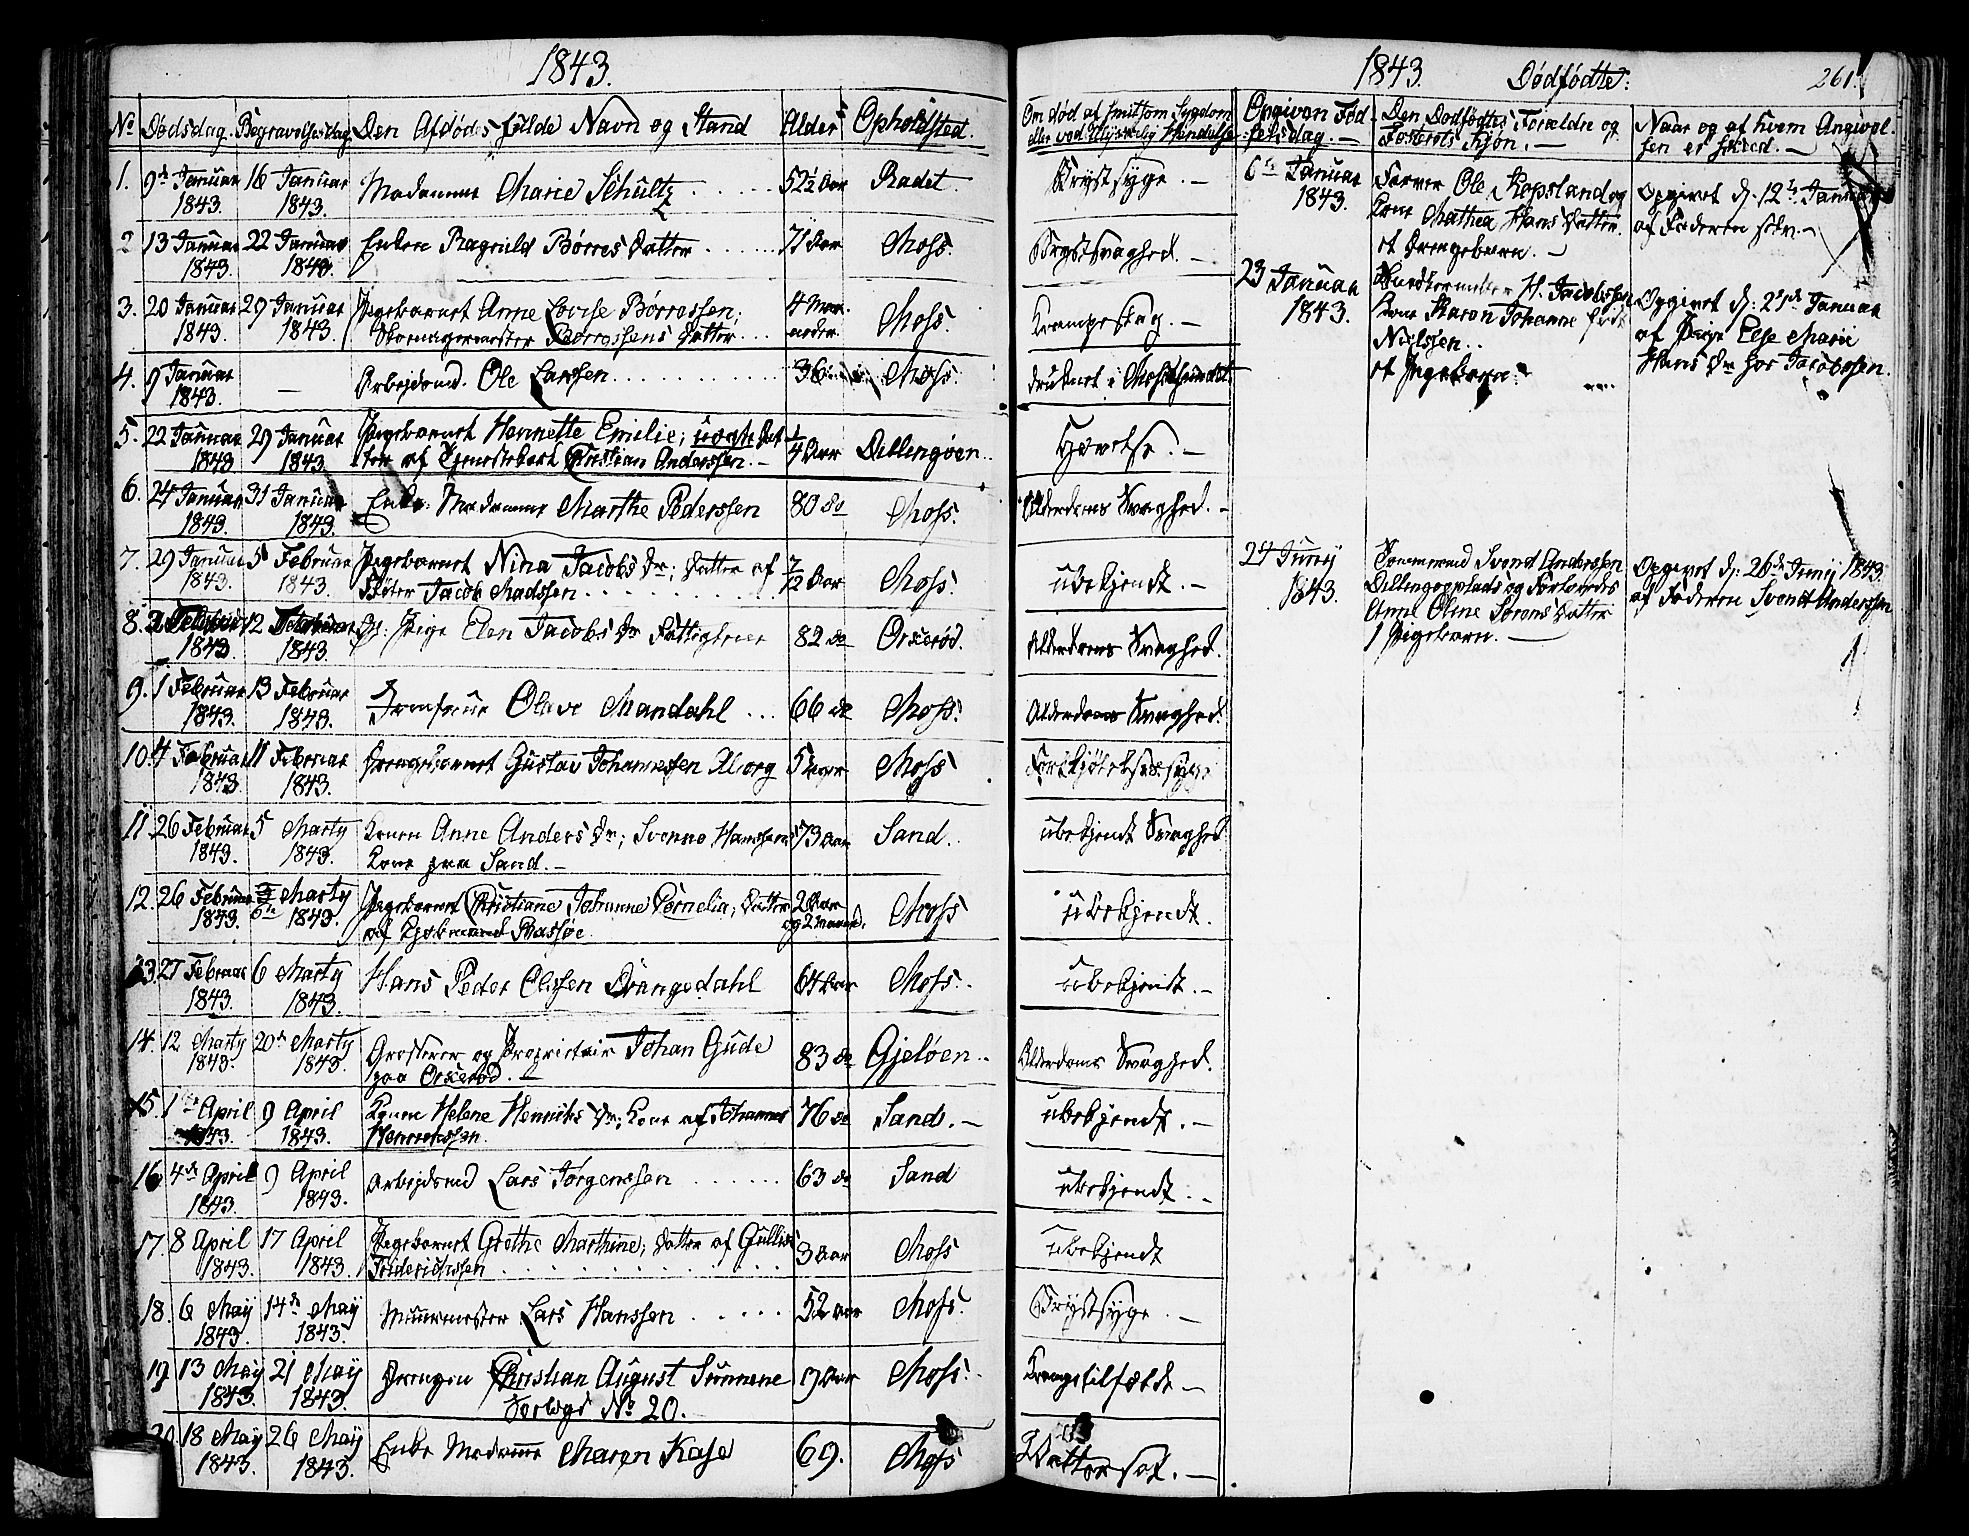 1843.
No Dødsdag. Begravelsesdag. Den Afdødes fulde Navn og Stand Alder Opholdsted.
1. 9de Januar 1843. 16 Januar 1843. Madamme Marie Schultz 52½ Aar Radet.
2 13 Januar 1843. 22 Januar 1843. Enken Ragnild Børres Datter 71 Aar Moss.
3. 20 Januar 1843. 29 Januar 1843. Pigebarnet Anne Lovise Børresen;
Skomagermester Børresens Datter 4 Maaneder Moss.
4. 9 Januar 1843. — Arbeidsmd. Ole Larssen 36 Moss.
5. 22 Januar 1843 29 Januar 1843. Pigebarnet Hennette Emilie; uægte Dat-
ter af Tjenestekarl Christian Anderssen. — ¼ Aar Dillingøen.
6. 24 Januar 1843. 31 Januar 1843. Enke Madamme Marthe Pederssen 80 do Moss.
7. 29 Januar 1843. 5 Februar 1843. Pigebarnet Nina Jacobs Dr; Datter af
Jacob Madssen 7/12 Aar Moss.
8. 2 Februar 1843 12 Februar 1843. Pige Elen Jacobs Dr Fattiglem 82 do Orkerød.
9. 1 Februar 1843. 13 Februar 1843. Jomfrue Olave Mandahl 66 do Moss.
10. 4 Februar 1843 11 Februar 1843. Drengebarnet Gustav Johannesen Aborg 5 Moss
11. 26 Februar 1843. 5 Marty 1843. Konen Anne Anders Dr; Svenne Hanssens
Kone paa Sand. — 73 Aar Sand.
12. 26 Februar 1843. 6te Marty 1843. Pigebarnet Christiane Johanne Cornelia; Datter
af Kjøbmand Rasjøe 2 Aar og 2 Maaned. Moss
13. 27 Februar 1843. 6 Marty 1843. Hans Peder Olssen Drangedahl 64 Aar Moss.
14. 12 Marty 1843. 20de Marty 1843. Grosserer og Proprietair Johan Gude
paa Orkerød. — 83 do Gjeløen.
15. 1ste April 1843. 9 April 1843. Konen Helene Henriks Dr; Kone af Johannes
76 do Sand. —
16 4de April 1843. 9 April 1843. Arbejdsmd Lars Jørgenssen 63 do Sand
17. 8 April 1843. 17 April 1843. Pigebarnet Grethe Marthine; Datter af
Friderichssen 3 Aar Moss
18. 6 May 1843. 14de May 1843. Muurmester Lars Hanssen 52 Aar Moss.
19. 13 May 1843. 21 May 1843. Drengen Christian August Sunnene 9 Aar Moss.
No 20.
20. 18 May 1843. 26 May 1843. Enke Madame Maren Kase 69. Moss
1843. Dødfødte. 261.
Om død af smitsom Sygdom
eller ved Ulykkelig Hændelse
Brystsyge. —
Brystsvaghed. —
Krampeslag. —
druknet i Mossesundet
Hævelse. —
Alderdoms Svaghed. —
ubekjendt. —
Alderdoms Svaghed.
Alderdoms Svaghed.
ubekjendt Svaghed
ubekjendt.
ubekjendt. —
Alderdoms Svaghed.
ubekjendt. —
ubekjendt. —
ubekjendt
Brystsyge. —
Krampetilfælde —
Vattersot. —
Opgiven Fødselsdag. — Den Dødfødtes Forældre og
Fosterets Kjøn. — Naar og af hvem Angivel-
sen er skeed. —
6te Januar 1843. Farver Ole Kopsland og
Kone Mathea Hans Datter
et Drengebarn. —
Opgivet d: 12te Januar
af Faderen selv. —
23 Januar 1843. H. Jacobsen
Kone Karen Johanne
Nielssen.
et Pigebarn
Opgivet d: Januar
af Pige Else Marie
Hans Dr hos Jacobsen.
24 Juny 1843. Tømmermd Svend Anderssen
Dillingøpplads og Forlovede
Anne Oline Sørens Datter
1 Pigebarn. —
Opgivet d: 26de Juny 1843.
af Faderen Svend Anderssen